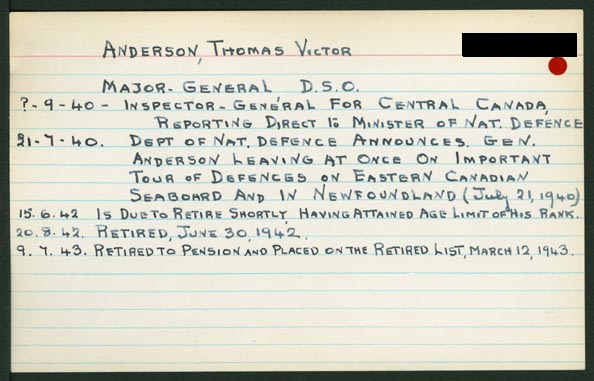 ANDERSON, THOMAS VICTOR
MAJOR-GENERAL D.S.O.
?-9-40 - INSPECTOR-GENERAL FOR CENTRAL CANADA,
REPORTING DIRECT TO MINISTER OF NAT. DEFENCE
21-7-40. DEPT OF NAT. DEFENCE ANNOUNCES, GEN.
ANDERSON LEAVING AT ONCE ON IMPORTANT
TOUR OF DEFENCES ON EASTERN CANADIAN
SEABOARD AND IN NEWFOUNDLAND (July 21, 1940)
15.6.42 IS DUE TO RETIRE SHORTLY, HAVING ATTAINED AGE LIMIT OF HIS RANK.
20.8.42. RETIRED, JUNE 30, 1942.
9.7.43. RETIRED TO PENSION AND PLACED ON THE RETIRED LIST, MARCH 12, 1943.